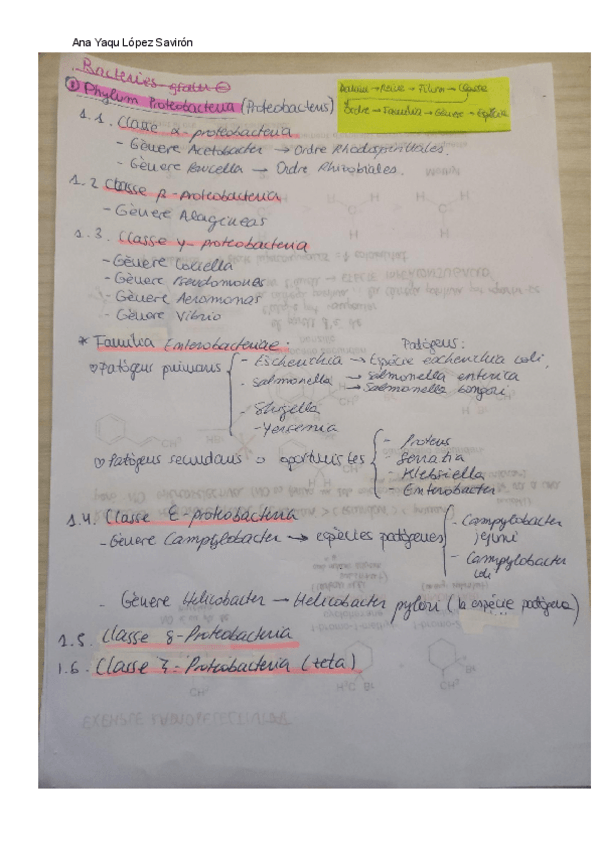 Ana Yaqu López Savirón
Bacteries gram ⊖
① Phylum Proteobacteria (Proteobacteris)
→ Reine → Filum → Classe
Ordre → Família → Gènere → Espècie
1.1. Classe α-proteobacteria
- Gènere Acetobacter → Ordre Rhodispirillales.
- Gènere Brucella → Ordre Rhizobiales.
1.2 Classe β-Proteobacteria
- Gènere Alagineas
1.3. Classe γ-proteobacteria
- Gènere Coxiella
- Gènere Pseudomones
- Gènere Aeromonas
- Gènere Vibrio
* Família Enterobacteriae:
Patògens:
♡ Patògens primaris
- Escherichia → Espècie escherichia coli.
- Salmonella → Salmonella enterica
→ Salmonella bongori
- Shigella
- Yersenia
♡ Patògens secundaris o oportunistes
- Proteus
- Serratia
- Klebsiella
- Enterobacter
1.4. Classe ε-proteobacteria
- Gènere Campylobacter → espècies patògenes
- Campylobacter jejuni
- Campylobacter coli
- Gènere Helicobacter → Helicobacter pylori (la espècie patògena)
1.5. Classe δ-Proteobacteria
1.6. Classe ζ-Proteobacteria (teta)